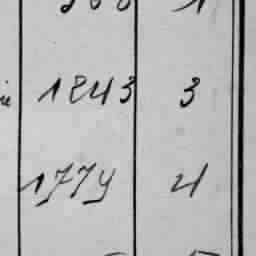 1843 3
1779 4